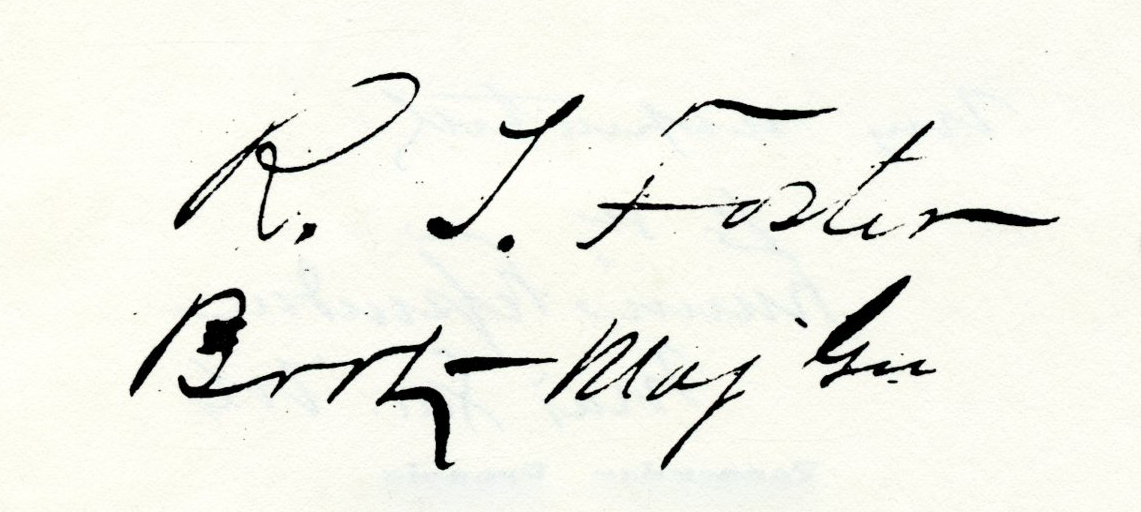 R. S. Foster
Brvt Maj Gen